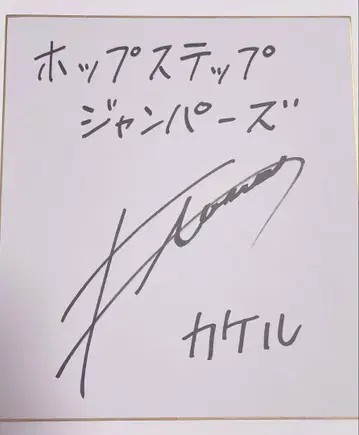 ホップステップ
ジャンパーズ
カケル